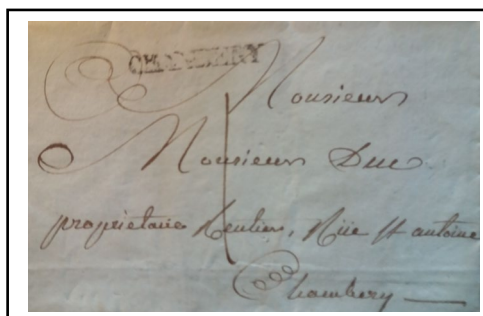 CHAMBERY
Monsieur
Monsieur Duc
propriétaire Rentier, Rüe St antoine
Chambery